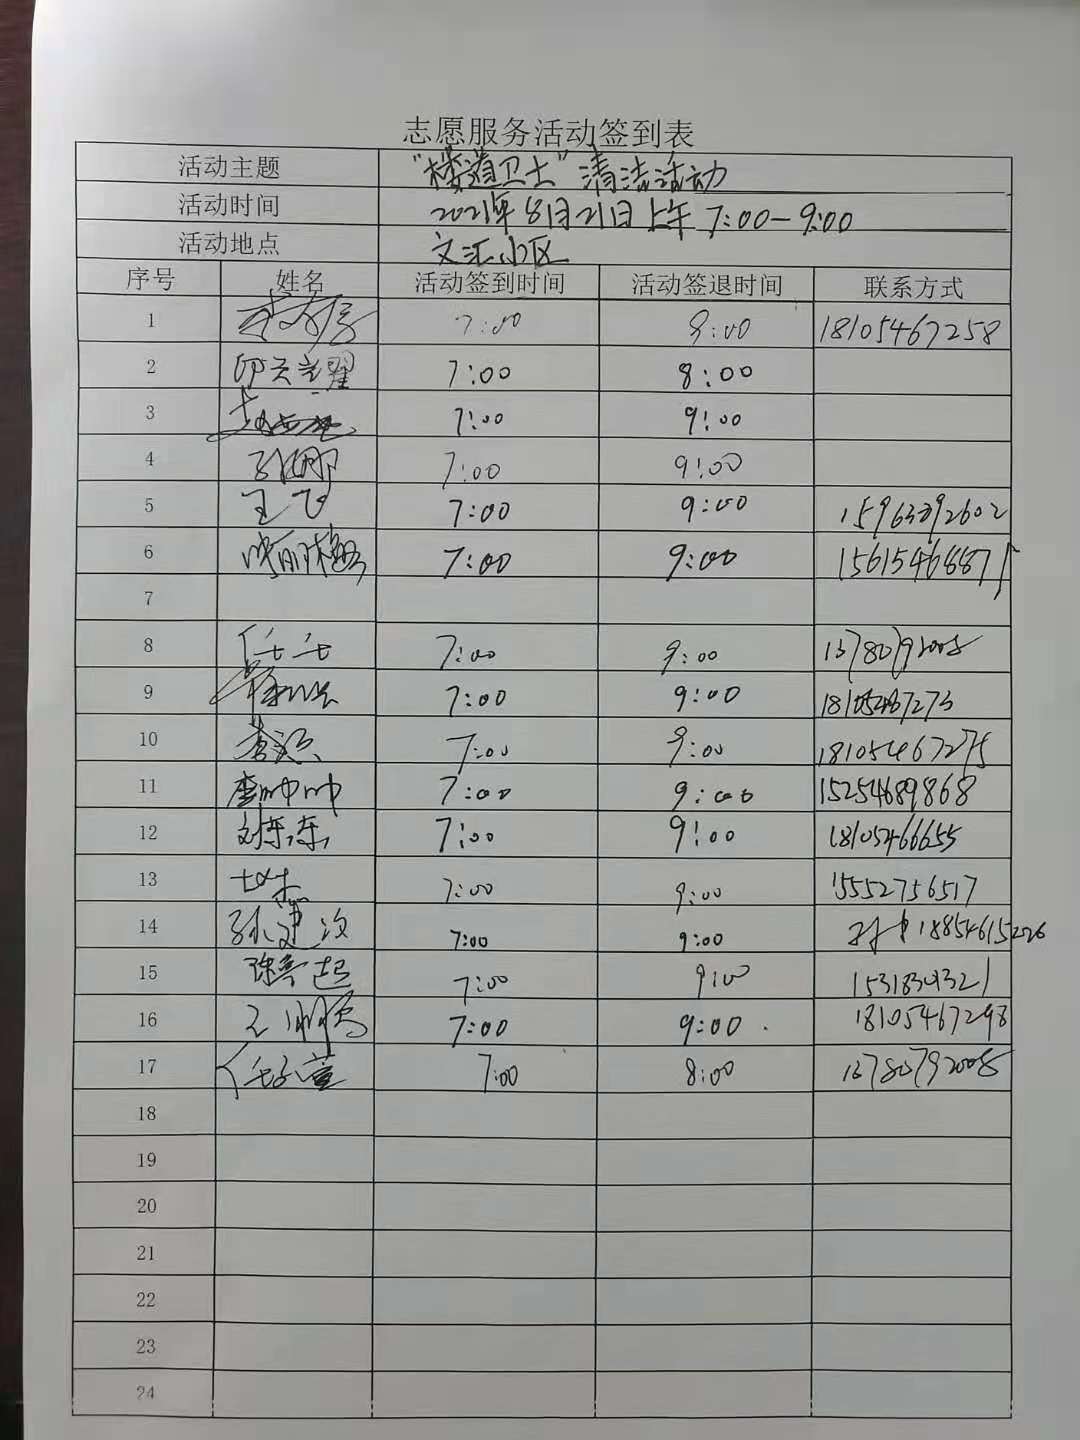 志愿服务活动签到表
活动主题 “楼道卫士”清洁活动
活动时间 2021年8月21日上午 7:00-9:00
活动地点 文汇小区
序号 姓名 活动签到时间 活动签退时间 联系方式
1 7:00 9:00 18105467258
2 7:00 8:00
3 7:00 9:00
4 孙娜 7:00 9:00
5 王飞 7:00 9:00 15963392602
6 7:00 9:00 15615468871
7
8 7:00 9:00 13780792008
9 7:00 9:00 18105467273
10 7:00 9:00 18105467275
11 李帅帅 7:00 9:00 15254689868
12 刘东东 7:00 9:00 18105466655
13 7:00 9:00 15552756517
14 孙建波 7:00 9:00 18854615226
15 陈鲁超 7:00 9:00
16 7:00 9:00 18105467298
17 任子萱 7:00 8:00 13780792008
18
19
20
21
22
23
24